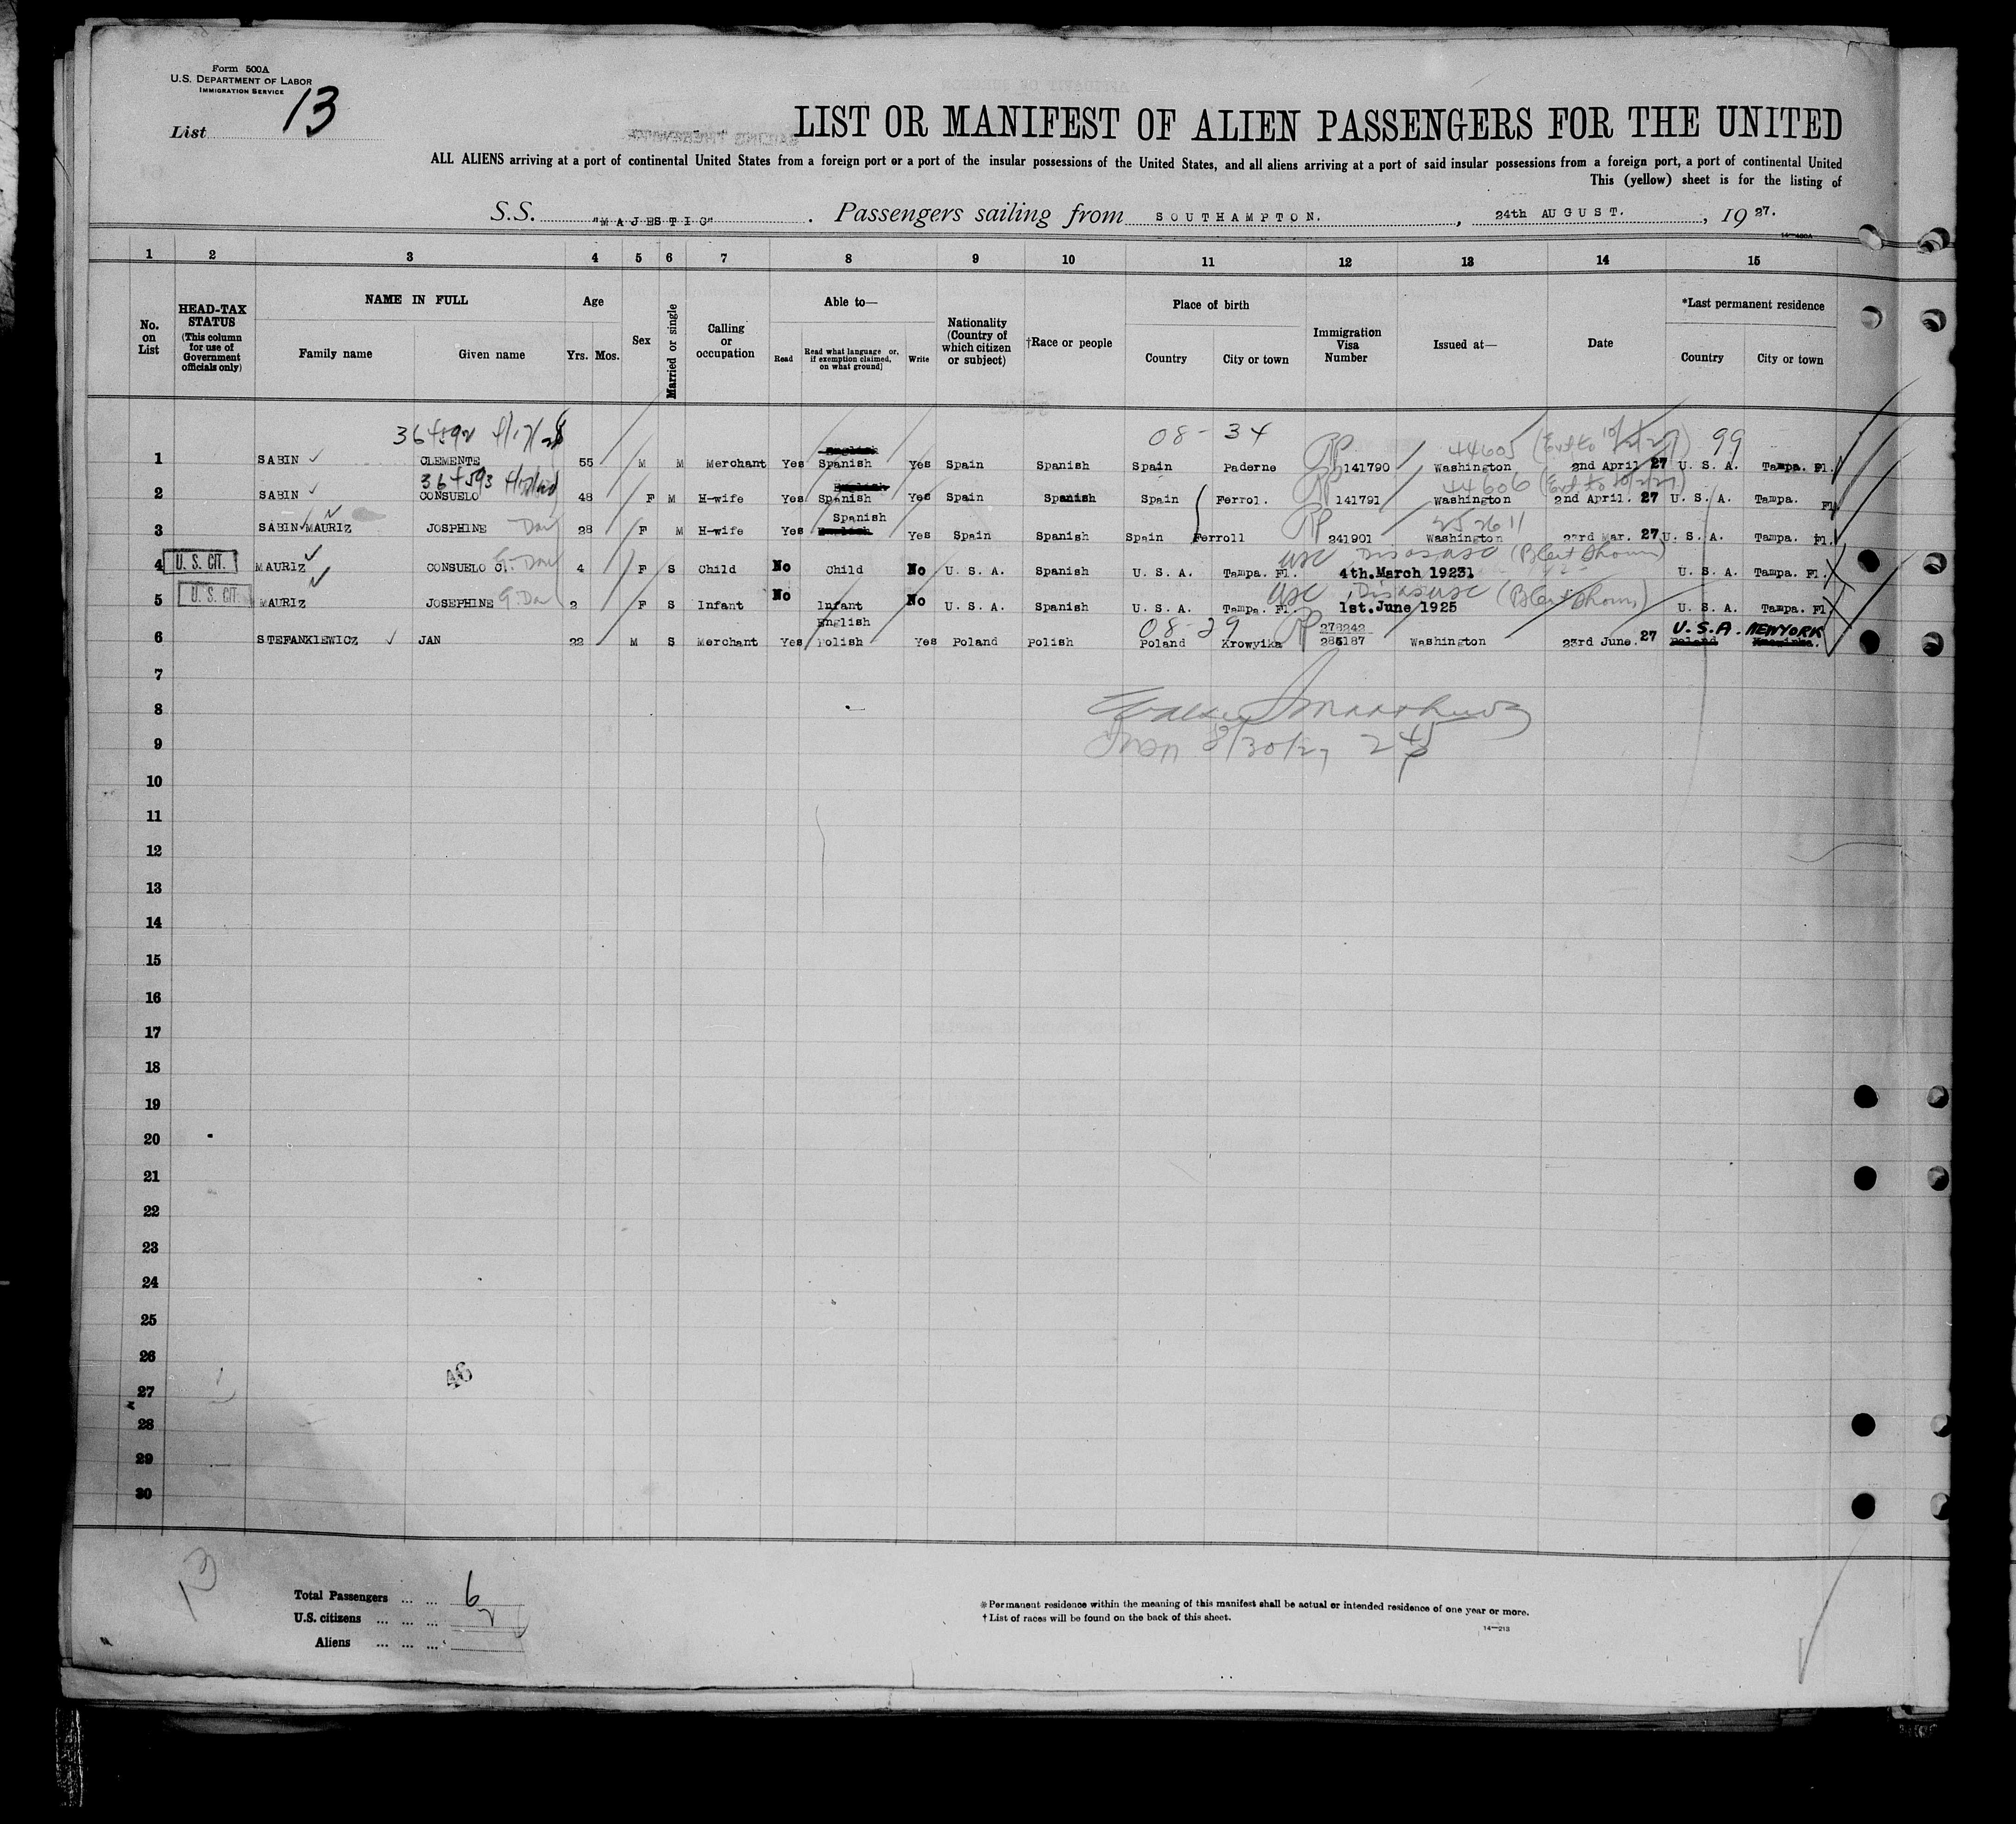 Form 500A
U.S. DEPARTMENT OF LABOR
IMMIGRATION SERVICE
List 13
LIST OR MANIFEST OF ALIEN PASSENGERS FOR THE UNITED
ALL ALIENS arriving at a port of continental United States from a foreign port or a port of the insular possessions of the United States, and all aliens arriving at a port of said insular possessions from a foreign port, a port of continental United
This (yellow) sheet is for the listing of
S.S. "MAJESTIC". Passengers sailing from SOUTHAMPTON., 24th AUGUST., 1927.
1 2 3 4 5 6 7 8 9 10 11 12 13 14 15
No. on List
HEAD-TAX STATUS (This column for use of Government officials only)
NAME IN FULL
Family name Given name
Age
Yrs. Mos.
Sex
Married or single
Calling or occupation
Able to—
Read Read what language or, if exemption claimed, on what ground] Write
Nationality (Country of which citizen or subject)
†Race or people
Place of birth
Country City or town
Immigration Visa Number
Issued at—
Date
*Last permanent residence
Country City or town
08-34 44605 99
English
1 SABIN CLEMENTE 55 M M Merchant Yes Spanish Yes Spain Spanish Spain Paderne RP 141790 Washington 2nd April 27 U. S. A. Tampa. Fl.
364593 44606
English
2 SABIN CONSUELO 48 F M H-wife Yes Spanish Yes Spain Spanish Spain Ferrol. RP 141791 Washington 2nd April. 27 U. S. A. Tampa. Fl.
Spanish
3 SABIN MAURIZ JOSPHINE Dau 28 F M H-wife Yes English Yes Spain Spanish Spain Ferroll RP 241901 Washington 23rd Mar. 27 U. S. A. Tampa. Fl.
4 U. S. CIT. MAURIZ CONSUELO C. G. Dau 4 F S Child No Child No U. S. A. Spanish U. S. A. Tampa. Fl. USC 4th. March 19231 U. S. A. Tampa. Fl.
5 U. S. CIT. MAURIZ JOSEPHINE G. Dau 2 F S Infant No Infant No U. S. A. Spanish U. S. A. Tampa. Fl. USC 1st. June 1925 U. S. A. Tampa. Fl.
English 08-29 278242 U.S.A. NEWYORK
6 STEFANKIEWICZ JAN 22 M S Merchant Yes Polish Yes Poland Polish Poland Krowyika RP 285187 Washington 23rd June. 27 Poland
7
8
8/30/27
9
10
11
12
13
14
15
16
17
18
19
20
21
22
23
24
25
26
46
27
28
29
30
13
Total Passengers ... ... 6
U.S. citizens ... ... ... 2
Aliens ... ... ...
*Permanent residence within the meaning of this manifest shall be actual or intended residence of one year or more.
†List of races will be found on the back of this sheet.
14—213